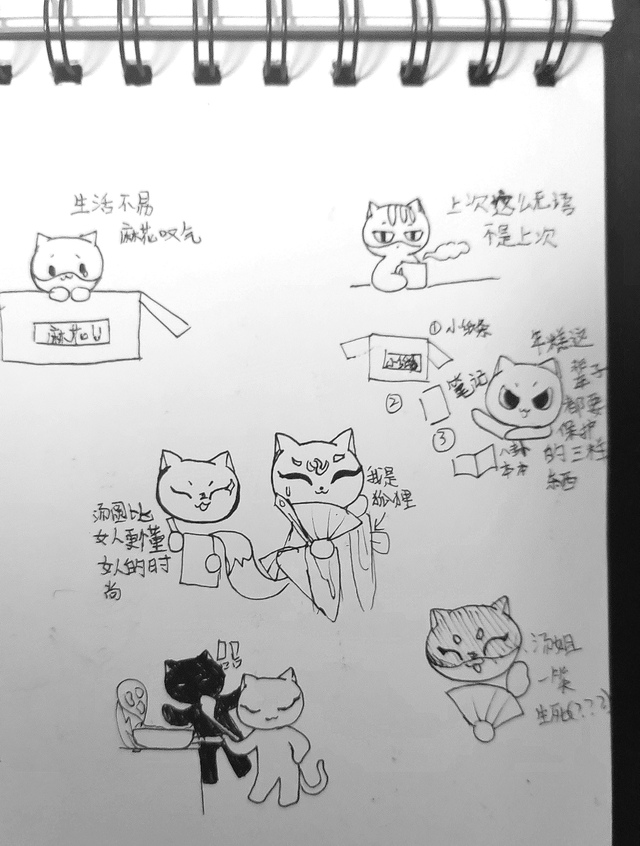 生活不易
麻花叹气
麻花
上次这么无语
不是上次
①小纸条
②
笔记
③
八卦
本本
年糕这
辈子
都要
保护
的三样
东西
汤圆比
女人更懂
女人的时
尚
我是
狐狸
!!
汤姐
一笑
生死(???)